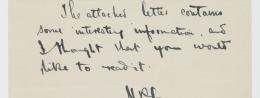 The attached letter contains
some interesting information, and
I thought that you would
like to read it.